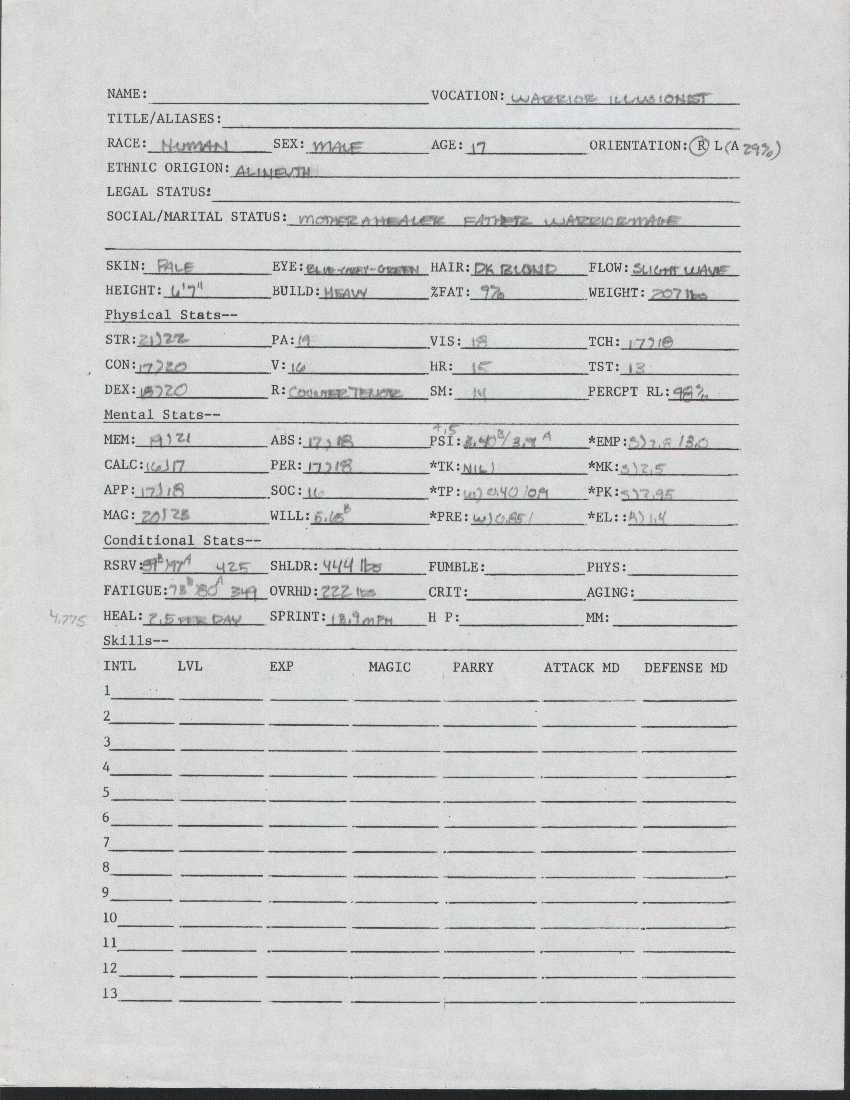 NAME: VOCATION: WARRIOR ILLUSIONIST
TITLE/ALIASES:
RACE: HUMAN SEX: MALE AGE: 17 ORIENTATION: (R) L (A 29%)
ETHNIC ORIGION: ALINEUTH
LEGAL STATUS:
SOCIAL/MARITAL STATUS: MOTHER A HEALER FATHER WARRIOR MAGE
SKIN: PALE EYE: BLUE-GREY-GREEN HAIR: DK BLOND FLOW: SLIGHT WAVE
HEIGHT: 6'7" BUILD: HEAVY %FAT: 9% WEIGHT: 207 lbs
Physical Stats--
STR: 21)22 PA: 19 VIS: 18 TCH: 17)18
CON: 17)20 V: 16 HR: 15 TST: 13
DEX: 18)20 R: COUNTER TENOR SM: 14 PERCPT RL: 98%
Mental Stats--
MEM: 19)21 ABS: 17)18 PSI: *EMP:
CALC: 16)17 PER: 17)18 *TK: NIL) *MK: S)2.5
APP: 17)18 SOC: 16 *TP: W) 0.40 *PK: S)2.95
MAG: 20)23 WILL: *PRE: W) 0.85/ *EL:: A) 1.4
Conditional Stats--
RSRV: 425 SHLDR: 444 lbs FUMBLE: PHYS:
FATIGUE: 78 B 80 A 349 OVRHD: 222 lbs CRIT: AGING:
4.775 HEAL: 2.5 PER DAY SPRINT: 18.9 MPH H P: MM:
Skills--
INTL LVL EXP MAGIC PARRY ATTACK MD DEFENSE MD
1
2
3
4
5
6
7
8
9
10
11
12
13